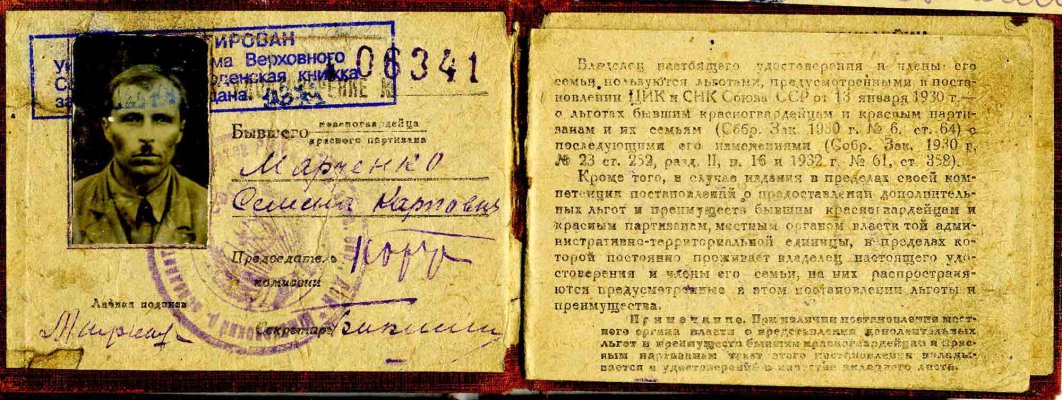 ИРОВАН
ма Верховного
денская книжка
дана.
06341
УДОСТОВЕРЕНИЕ №
Бывшего красногвардейца
красного партизана
Марченко
Семена Карповича
Председатель
комиссии
Личная подпись
Секретарь
Владелец настоящего удостоверения и члены его
семьи пользуются льготами, предусмотренными в поста-
новлении ЦИК и СНК Союза ССР от 13 января 1930 г.—
о льготах бывшим красногвардейцам и красным парти-
занам и их семьям (Собр. Зак. 1930 г. № 6, ст. 64) с
последующими его изменениями (Собр. Зак. 1930 г.
№ 23 ст. 252, разд. II, п. 16 и 1932 г. № 61, ст. 358).
Кроме того, в случае издания в пределах своей ком-
петенции постановлений о предоставлении дополнитель-
ных льгот и преимуществ бывшим красногвардейцам и
красным партизанам, местным органом власти той адми-
нистративно-территориальной единицы, в пределах ко-
торой постоянно проживает владелец настоящего удо-
стоверения и члены его семьи, на них распространя-
ются предусмотренные в этом постановлении льготы и
преимущества.
Примечание. При наличии постановления мест-
ного органа власти о предоставлении дополнительных
льгот и преимуществ бывшим красногвардейцам и крас-
ным партизанам текст этого постановления вклады-
вается в удостоверение в качестве вкладного листа.